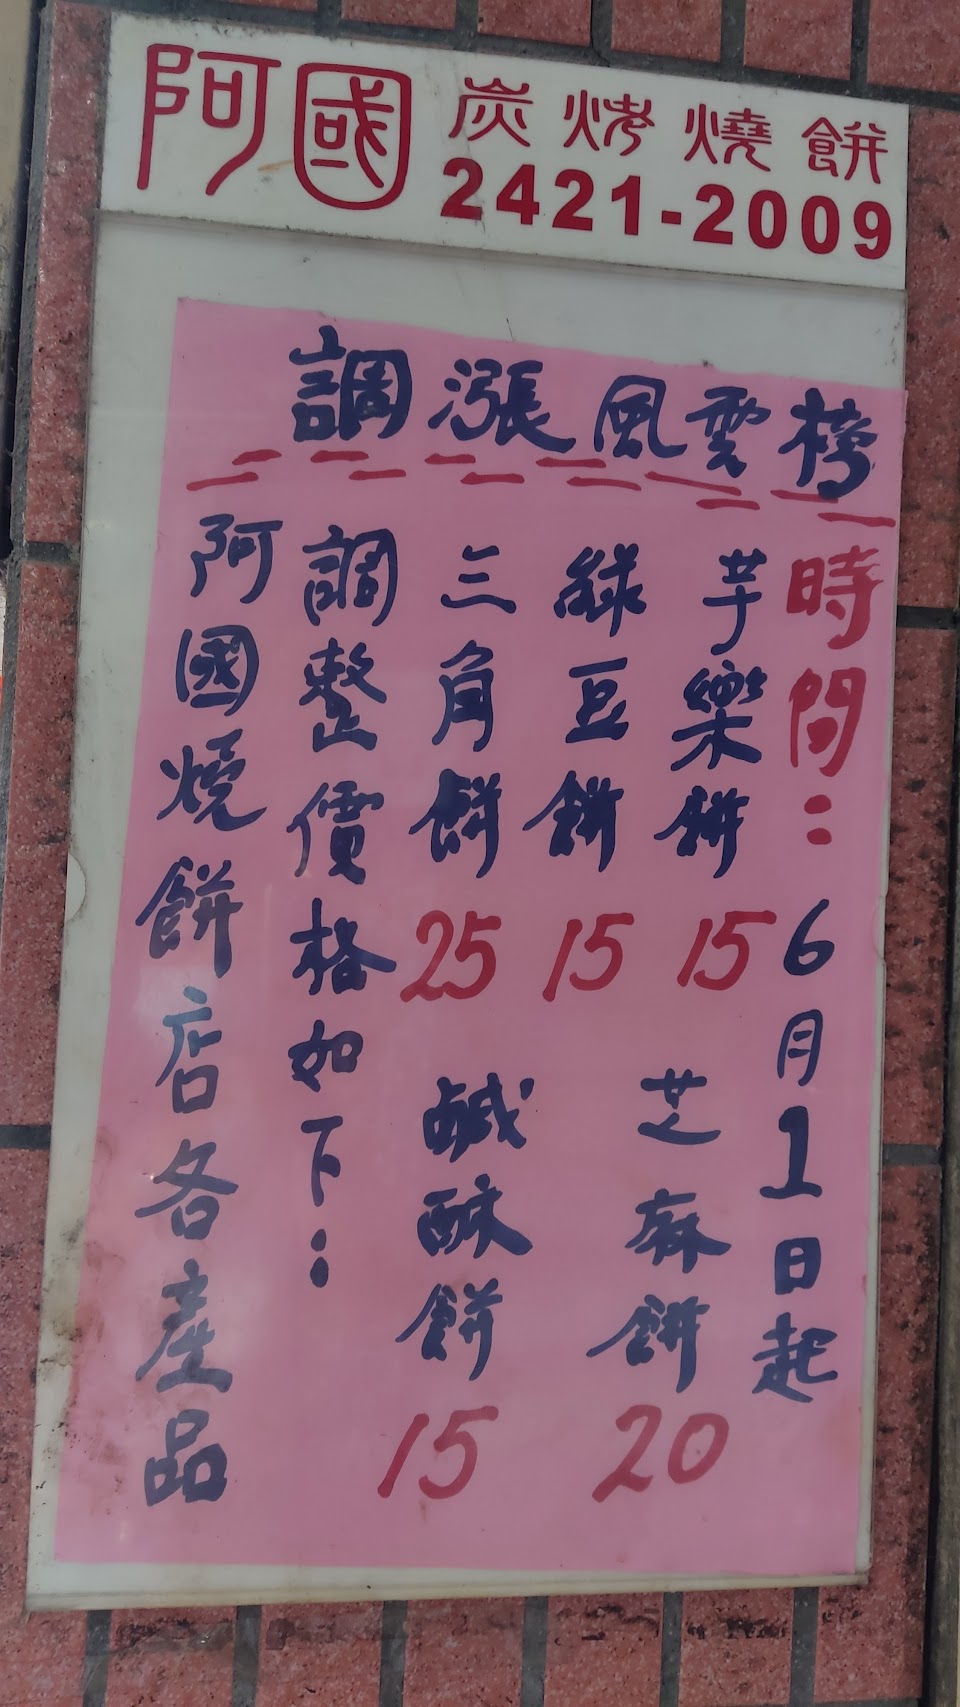 阿國炭烤燒餅
2421-2009
調漲風雲榜
阿國燒餅店各產品
調整價格如下:
三角餅 25
鹹酥餅 15
綠豆餅 15
芋樂餅 15
芝麻餅 20
時間:6月1日起